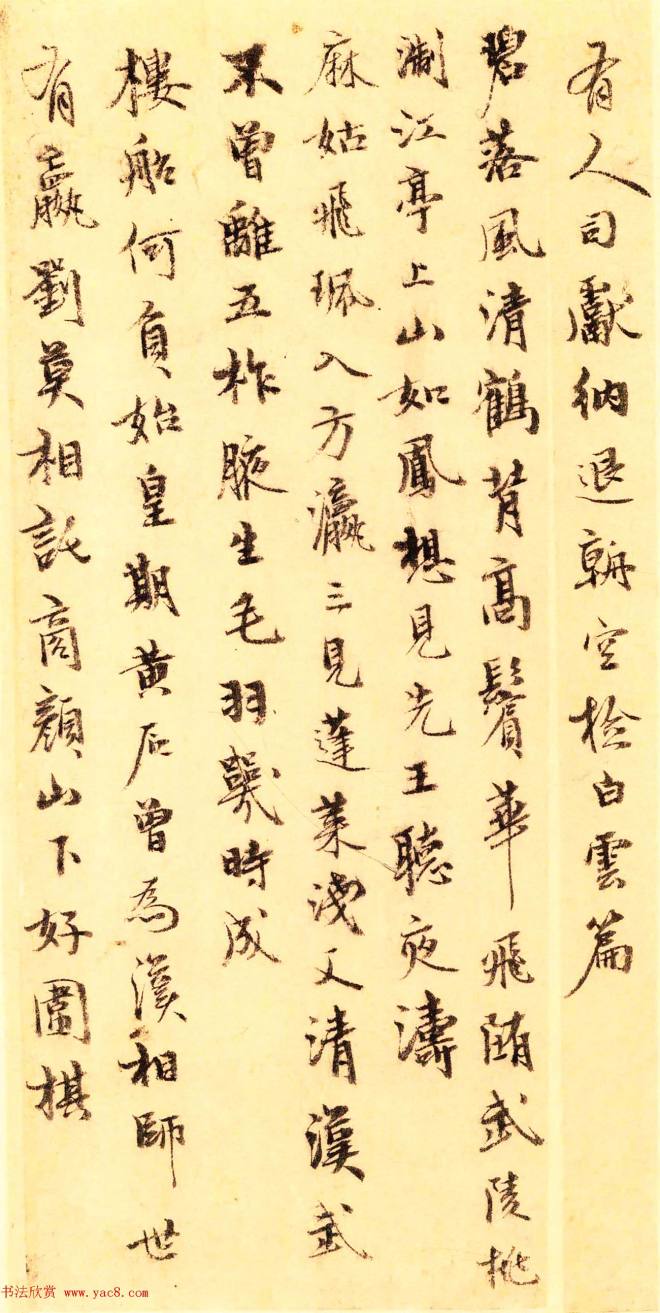 有人司獻納退朝空檢白雲篇
碧落風清鶴背高鬢華飛隨武陵桃
淛江亭上山如鳳想見先王聽夜濤
麻姑飛珮入方瀛三見蓬萊淺又清漢武
不曾離五柞腋生毛羽幾時成
樓船何負始皇期黃石曾為漢相師世
有嬴劉莫相託商顏山下好圍棋
书法欣赏 www.yac8.com